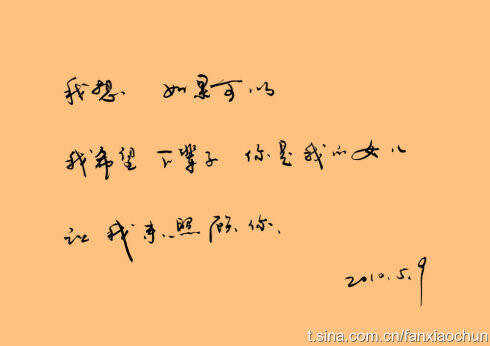 我想 如果可以
我希望下辈子 你是我的女儿
让我来照顾你.
2010.5.9
t.sina.com.cn/fanxiaochun